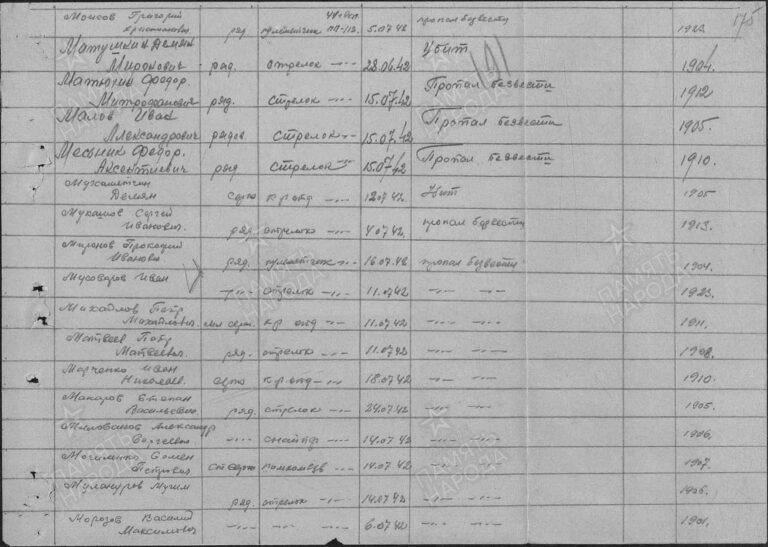 175
Моисов Григорий ряд. пулеметчик 5.07.42 пропал безвести 1923.
Матушкин Демьян
Миронович ряд. стрелок -"- 28.06.42 Убит 1904.
Матюхин Федор
Митрофанович ряд. Стрелок -"- 15.07.42 Пропал безвести 1912
Малов Иван
Александрович рядов. стрелок -"- 15.07.42 Пропал безвести 1905.
Месьник Федор.
Аксентиевич ряд стрелок -"- 15.07.42 Пропал безвести 1910.
Демян к-р отд -"- 12.07.42 Убит 1905
Мукашов Сергей
Иванович. ряд. стрелок -"- 4.07.42. пропал безвести 1913.
Миронов Прокофий
Иванович ряд. пулеметчик -"- 16.07.42 пропал безвести 1904.
Мусоваров Иван
-"- стрелок -"- 11.07.42 -"- -"- 1923.
Михайлов Петр
Михайлович. мл серж. к-р отд -"- 11.07.42 -"- -"- 1911.
Матвеев Петр
Матвеевич. ряд. стрелок -"- 11.07.42 -"- -"- 1908.
Марченко Иван
Николаев. к-р отд -"- 18.07.42 -"- -"- 1910.
Макаров Степан
Васильевич. ряд. стрелок -"- 24.07.42 -"- -"- 1905.
Милованов Александр
Сергеевич. -"- снайпр -"- 14.07.42 -"- -"- 1906.
Семен
Петрович помкомвзв -"- 14.07.42 -"- -"- 1907.
ряд. стрелок -"- 14.07.42 -"- -"- 1906.
Морозов Василий
Максимович -"- -"- -"- 6.07.42 -"- -"- 1901.
ПАМЯТЬ
НАРОДА